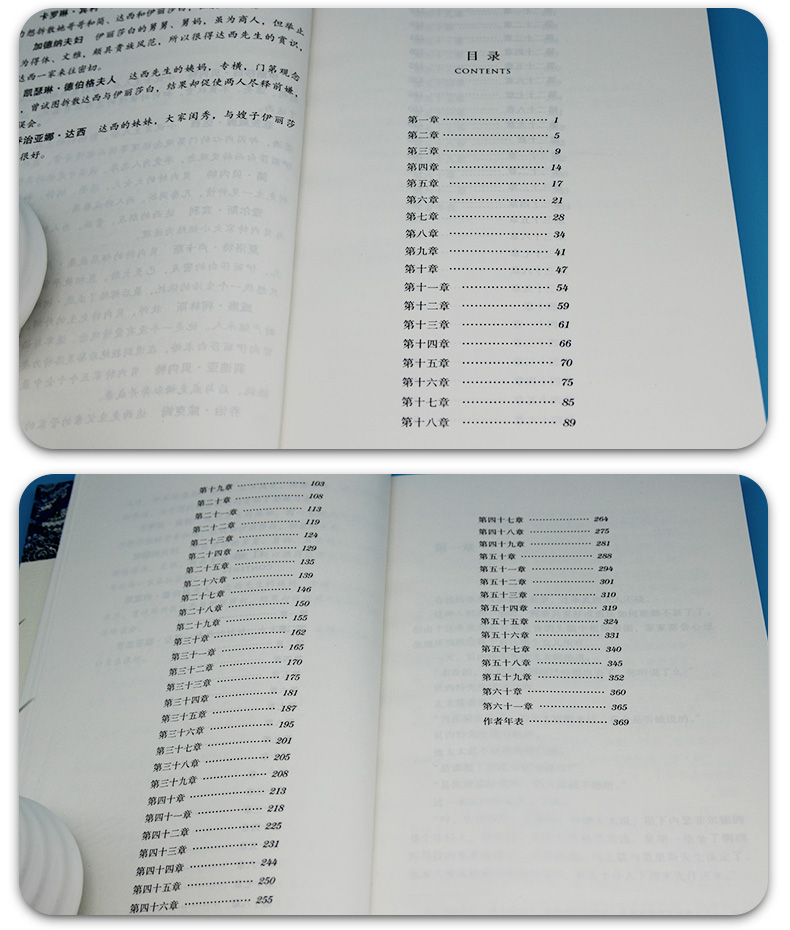 卡罗琳·宾利
加德纳夫妇 伊丽莎白的舅舅、舅妈，虽为商人，但举止
为得体、文雅，颇具贵族风范，所以很得达西先生的赏识，
达西一家来往密切。
凯瑟琳·德伯格夫人 达西先生的姨妈，专横，门第观念
，曾试图拆散达西与伊丽莎白，结果却促使两人尽释前嫌，
误会。
乔治亚娜·达西 达西的妹妹，大家闺秀，与嫂子伊丽莎
很好。
目录
CONTENTS
第一章 1
第二章 5
第三章 9
第四章 14
第五章 17
第六章 21
第七章 28
第八章 34
第九章 41
第十章 47
第十一章 54
第十二章 59
第十三章 61
第十四章 66
第十五章 70
第十六章 75
第十七章 85
第十八章 89
第十九章 103
第二十章 108
第二十一章 113
第二十二章 119
第二十三章 124
第二十四章 129
第二十五章 135
第二十六章 139
第二十七章 146
第二十八章 150
第二十九章 155
第三十章 162
第三十一章 165
第三十二章 170
第三十三章 175
第三十四章 181
第三十五章 187
第三十六章 195
第三十七章 201
第三十八章 205
第三十九章 208
第四十章 213
第四十一章 218
第四十二章 225
第四十三章 231
第四十四章 244
第四十五章 250
第四十六章 255
第四十七章 264
第四十八章 275
第四十九章 281
第五十章 288
第五十一章 294
第五十二章 301
第五十三章 310
第五十四章 319
第五十五章 324
第五十六章 331
第五十七章 340
第五十八章 345
第五十九章 352
第六十章 360
第六十一章 365
作者年表 369